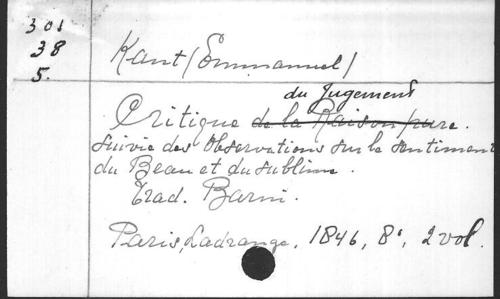 301
38
5.
Kant (Emmanuel)
du Jugement
Critique de la Raison pure.
suivie des Observations sur le sentiment
du Beau et du sublime.
Trad. Barni.
Paris, Ladrange, 1846, 8°, 2 vol.